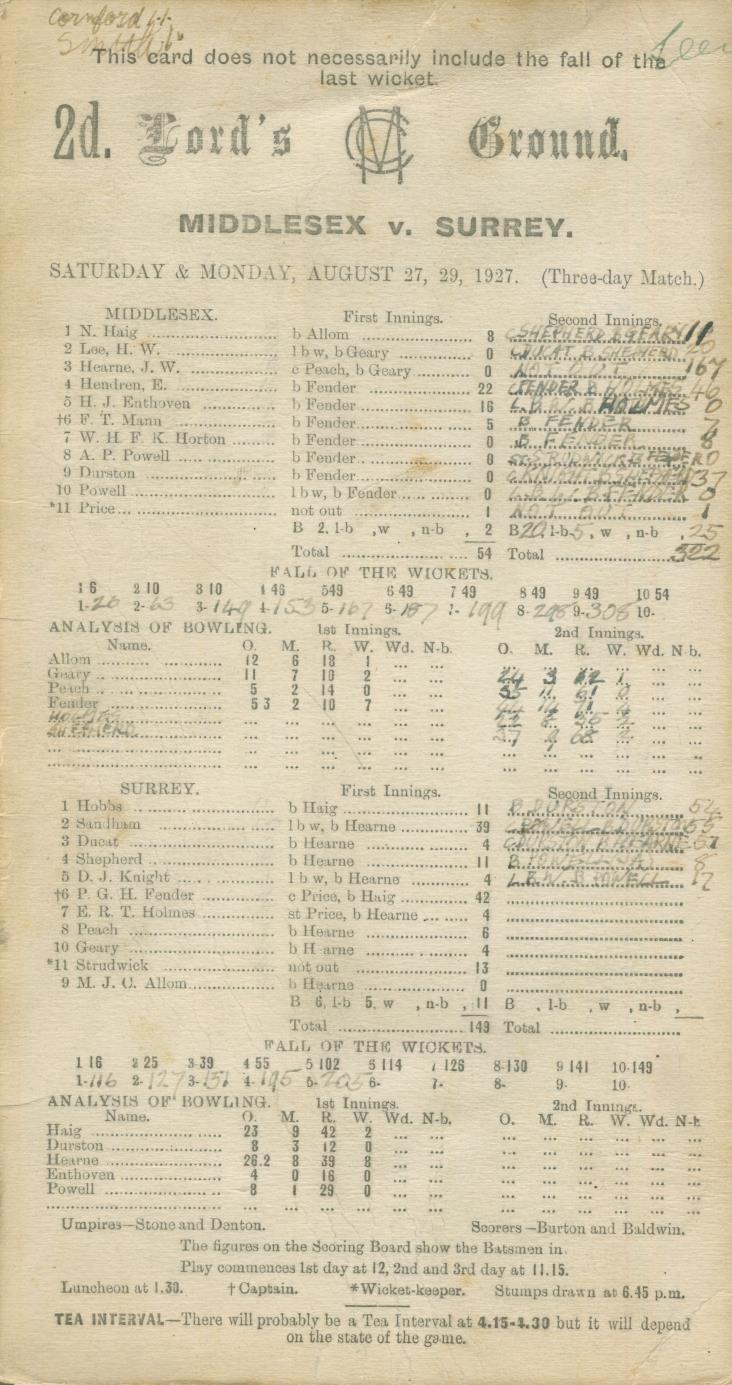 Cornford
Smith
This card does not necessarily include the fall of the
last wicket.
2d. Lord's MCC Ground.
MIDDLESEX v. SURREY.
SATURDAY & MONDAY, AUGUST 27, 29, 1927. (Three-day Match.)
MIDDLESEX. First Innings. Second Innings.
1 N. Haig b Allom 8 C SHEPHERD B GEARY 11
2 Lee, H. W. l b w, b Geary 0 C DUCAT B SHEPHERD
3 Hearne, J. W. c Peach, b Geary 0 NOT OUT 167
4 Hendren, E. b Fender 22 C FENDER B HOLMES
5 H. J. Enthoven b Fender 16 L.B.W. B HOLMES 0
†6 F. T. Mann b Fender 5 B FENDER 7
7 W. H. F. K. Horton b Fender 0 B FENDER 8
8 A. P. Powell b Fender 0 ST STRUDWICK B FENDER 0
9 Durston b Fender 0 37
10 Powell l b w, b Fender 0 L.B.W. B FENDER 0
*11 Price not out 1 NOT OUT 1
B 2, l-b , w , n-b , 2 B 20, l-b 5, w , n-b , 25
Total 54 Total 322
FALL OF THE WICKETS.
1 6 2 10 3 10 4 46 5 49 6 49 7 49 8 49 9 49 10 54
1-26 2-63 3-149 4-153 5-167 6-187 7-199 8-298 9-308 10-
ANALYSIS OF BOWLING. 1st Innings. 2nd Innings.
Name. O. M. R. W. Wd. N-b. O. M. R. W. Wd. N b.
Allom 12 6 18 1
Geary 11 7 10 2 24 3 62 1
Peach 5 2 14 0 35 11 61 0
Fender 5 3 2 10 7 44 14 71 4
HOLMES 22 8 35 2
SHEPHERD 37 9 68 2
SURREY. First Innings. Second Innings.
1 Hobbs b Haig 11 B DURSTON 54
2 Sandham l b w, b Hearne 39 55
3 Ducat b Hearne 4 C DURSTON B HEARNE 51
4 Shepherd b Hearne 11 B POWELL 8
5 D. J. Knight l b w, b Hearne 4 L.B.W. B POWELL 17
†6 P. G. H. Fender c Price, b Haig 42
7 E. R. T. Holmes st Price, b Hearne 4
8 Peach b Hearne 6
10 Geary b H arne 4
*11 Strudwick not out 13
9 M. J. C. Allom b Hearne 0
B 6, l-b 5, w , n-b , 11 B , l-b , w , n-b ,
Total 149 Total
FALL OF THE WICKETS.
1 16 2 25 3-39 4 55 5 102 6 114 7 126 8-130 9 141 10-149
1-116 2-127 3-151 4-195 5-205 6- 7- 8- 9- 10-
ANALYSIS OF BOWLING. 1st Innings. 2nd Innings.
Name. O. M. R. W. Wd. N-b. O. M. R. W. Wd. N-b
Haig 23 9 42 2
Durston 8 3 12 0
Hearne 26.2 8 39 8
Enthoven 4 0 16 0
Powell 8 1 29 0
Umpires—Stone and Denton. Scorers—Burton and Baldwin.
The figures on the Scoring Board show the Batsmen in.
Play commences 1st day at 12, 2nd and 3rd day at 11.15.
Luncheon at 1.30. †Captain. *Wicket-keeper. Stumps drawn at 6.45 p.m.
TEA INTERVAL—There will probably be a Tea Interval at 4.15-4.30 but it will depend
on the state of the game.